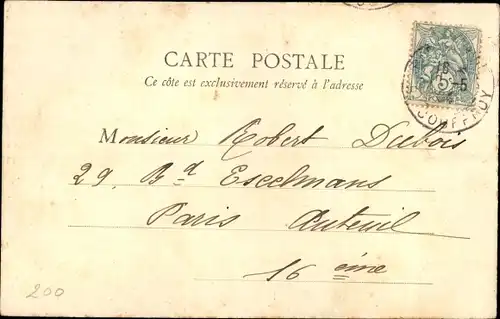 CARTE POSTALE
Ce côte est exclusivement réservé à l'adresse
Monsieur Robert Dubois
29. Bd Excelmans
Paris Auteuil
16 ème
200